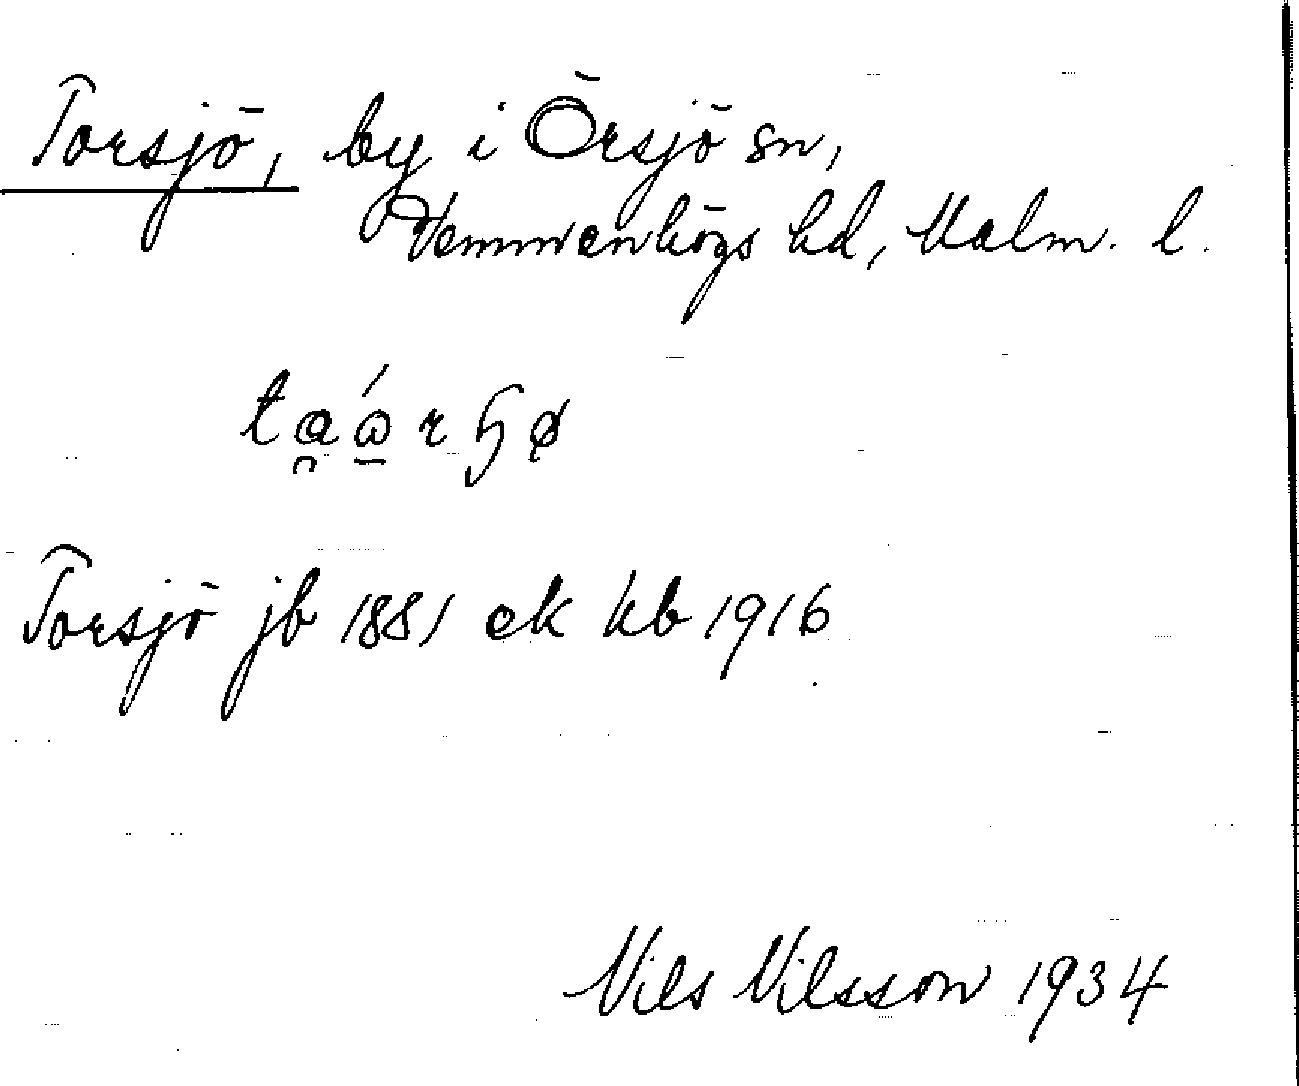 Torsjö, by i Örsjö sn,
Vemmenhögs hd, Malm. l.
Torsjö jb 1881 ck kb 1916
Nils Nilsson 1934